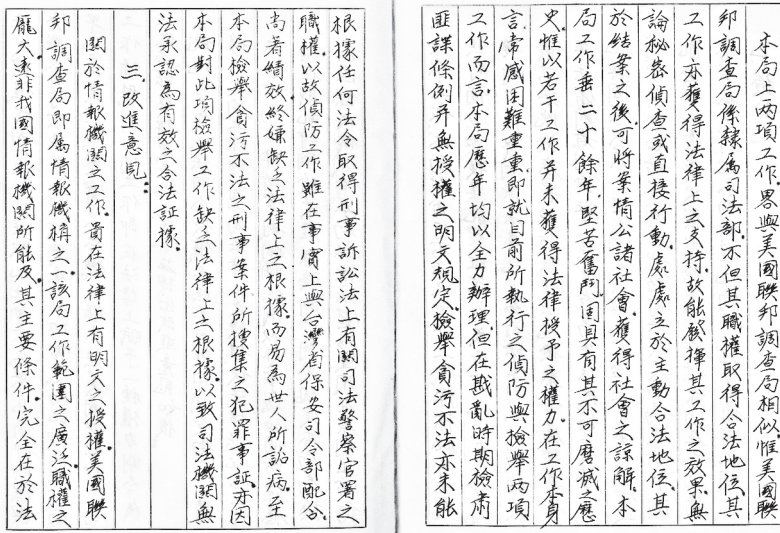 本局上兩項工作、畧與美國聯邦調查局相似惟美國聯
邦調查局係隸屬司法部、不但其職權取得合法地位、其
工作亦獲得法律上之支持、故能發揮其工作之效果、無
論秘密偵查或直接行動、處處立於主動合法地位、其
於結案之後、可將案情公諸社會、獲得社會之諒解、本
局工作垂二十餘年、堅苦奮鬥、固具有其不可磨滅之歷
史、惟以若干工作并未獲得法律授予之權力、在工作本身
言、常感困難重重、即就目前所執行之偵防與檢舉兩項
工作而言、本局歷年均以全力辦理、但在戡亂時期檢肅
匪諜條例并無授權之明文規定、檢舉貪污不法亦未能
根據任何法令取得刑事訴訟法上有關司法警察官署之
職權、以故偵防工作雖在事實上與台灣省保安司令部配合、
尚著績效、終嫌缺乏法律上之根據、而易為世人所詬病、至
本局檢舉貪污不法之刑事案件所搜集之犯罪事証、亦因
本局對此項檢舉工作缺乏法律上之根據、以致司法機關無
法承認為有效之合法証據。
三、改進意見：
關於情報機關之工作、貴在法律上有明文之授權、美國聯
邦調查局即屬情報機構之一、該局工作範圍之廣泛、職權之
龐大、遠非我國情報機關所能及、其主要條件、完全在於法